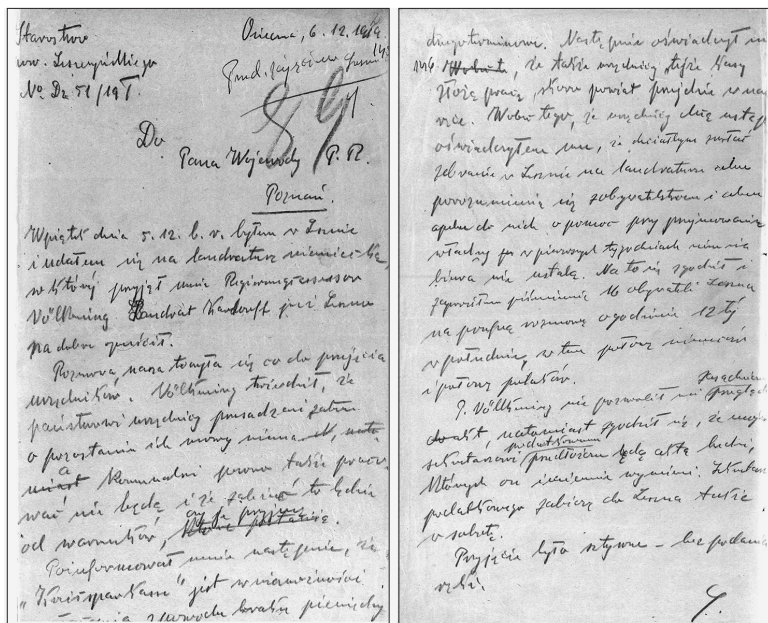 Starostwo
pow. Leszczyńskiego
No Dz 51/19 I
Osieczna, 6.12.1919.
Do
Pana Wojewody P. R.
Poznań.
W piątek dnia 5.12. b. r. byłem w Lesznie
i udałem się na landraturę niemiecką,
w której przyjął mnie Regierungsassessor
Völkening Landrat Kardorff już Leszno
na dobre opuścił.
Rozmowa nasza toczyła się co do przejęcia
urzędników. Völkening twierdził, że
państwowi urzędnicy
o pozostaniu ich mowy niema
a komunalni pewno także praco-
wać nie będą i że zależeć to będzie
od warunków,
Poinformował mnie następnie, że
"Kreissparkasse" jest w
z powodu braku pieniędzy
długoterminowe. Następnie oświadczył
że także urzędnicy tejże kasy
złożą pracę, skoro powiat przejdzie w nasze
ręce. Wobec tego, że urzędnicy chcą ustąpić
oświadczyłem mu, że chciałbym zwołać
zebranie w Lesznie na landraturze celem
porozumienia się z obywatelstwem i celem
apelu do nich o pomoc przy przejmowaniu
władzy w pierwszych tygodniach
Na to się zgodził i
zaprosiłem piśmiennie 16 obywateli Leszna
na poufną rozmowę o godzinie 12 tej
w południe, w tem połowę niemców
i połowę polaków.
P. Völkening nie pozwolił mi
natomiast zgodził się, że
sekretarzowi podatkowemu będą akta
których on imiennie wymieni. Sekretarza
podatkowego zabiorę do Leszna także
w sobotę.
Przyjęcie było sztywne – bez podania
ręki.